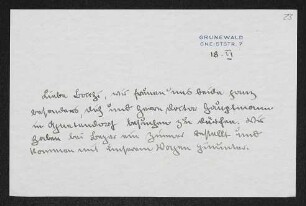 23
GRUNEWALD
GNEISTSTR. 7
18. VI
Liebe Borchi, wir freuen uns beide ganz
besonders dich und Herrn Doctor Hauptmann
in Agnetendorf besuchen zu dürfen. Wir
haben bei Beyer ein Zimmer bestellt und
kommen mit unserem Wagen hinunter.